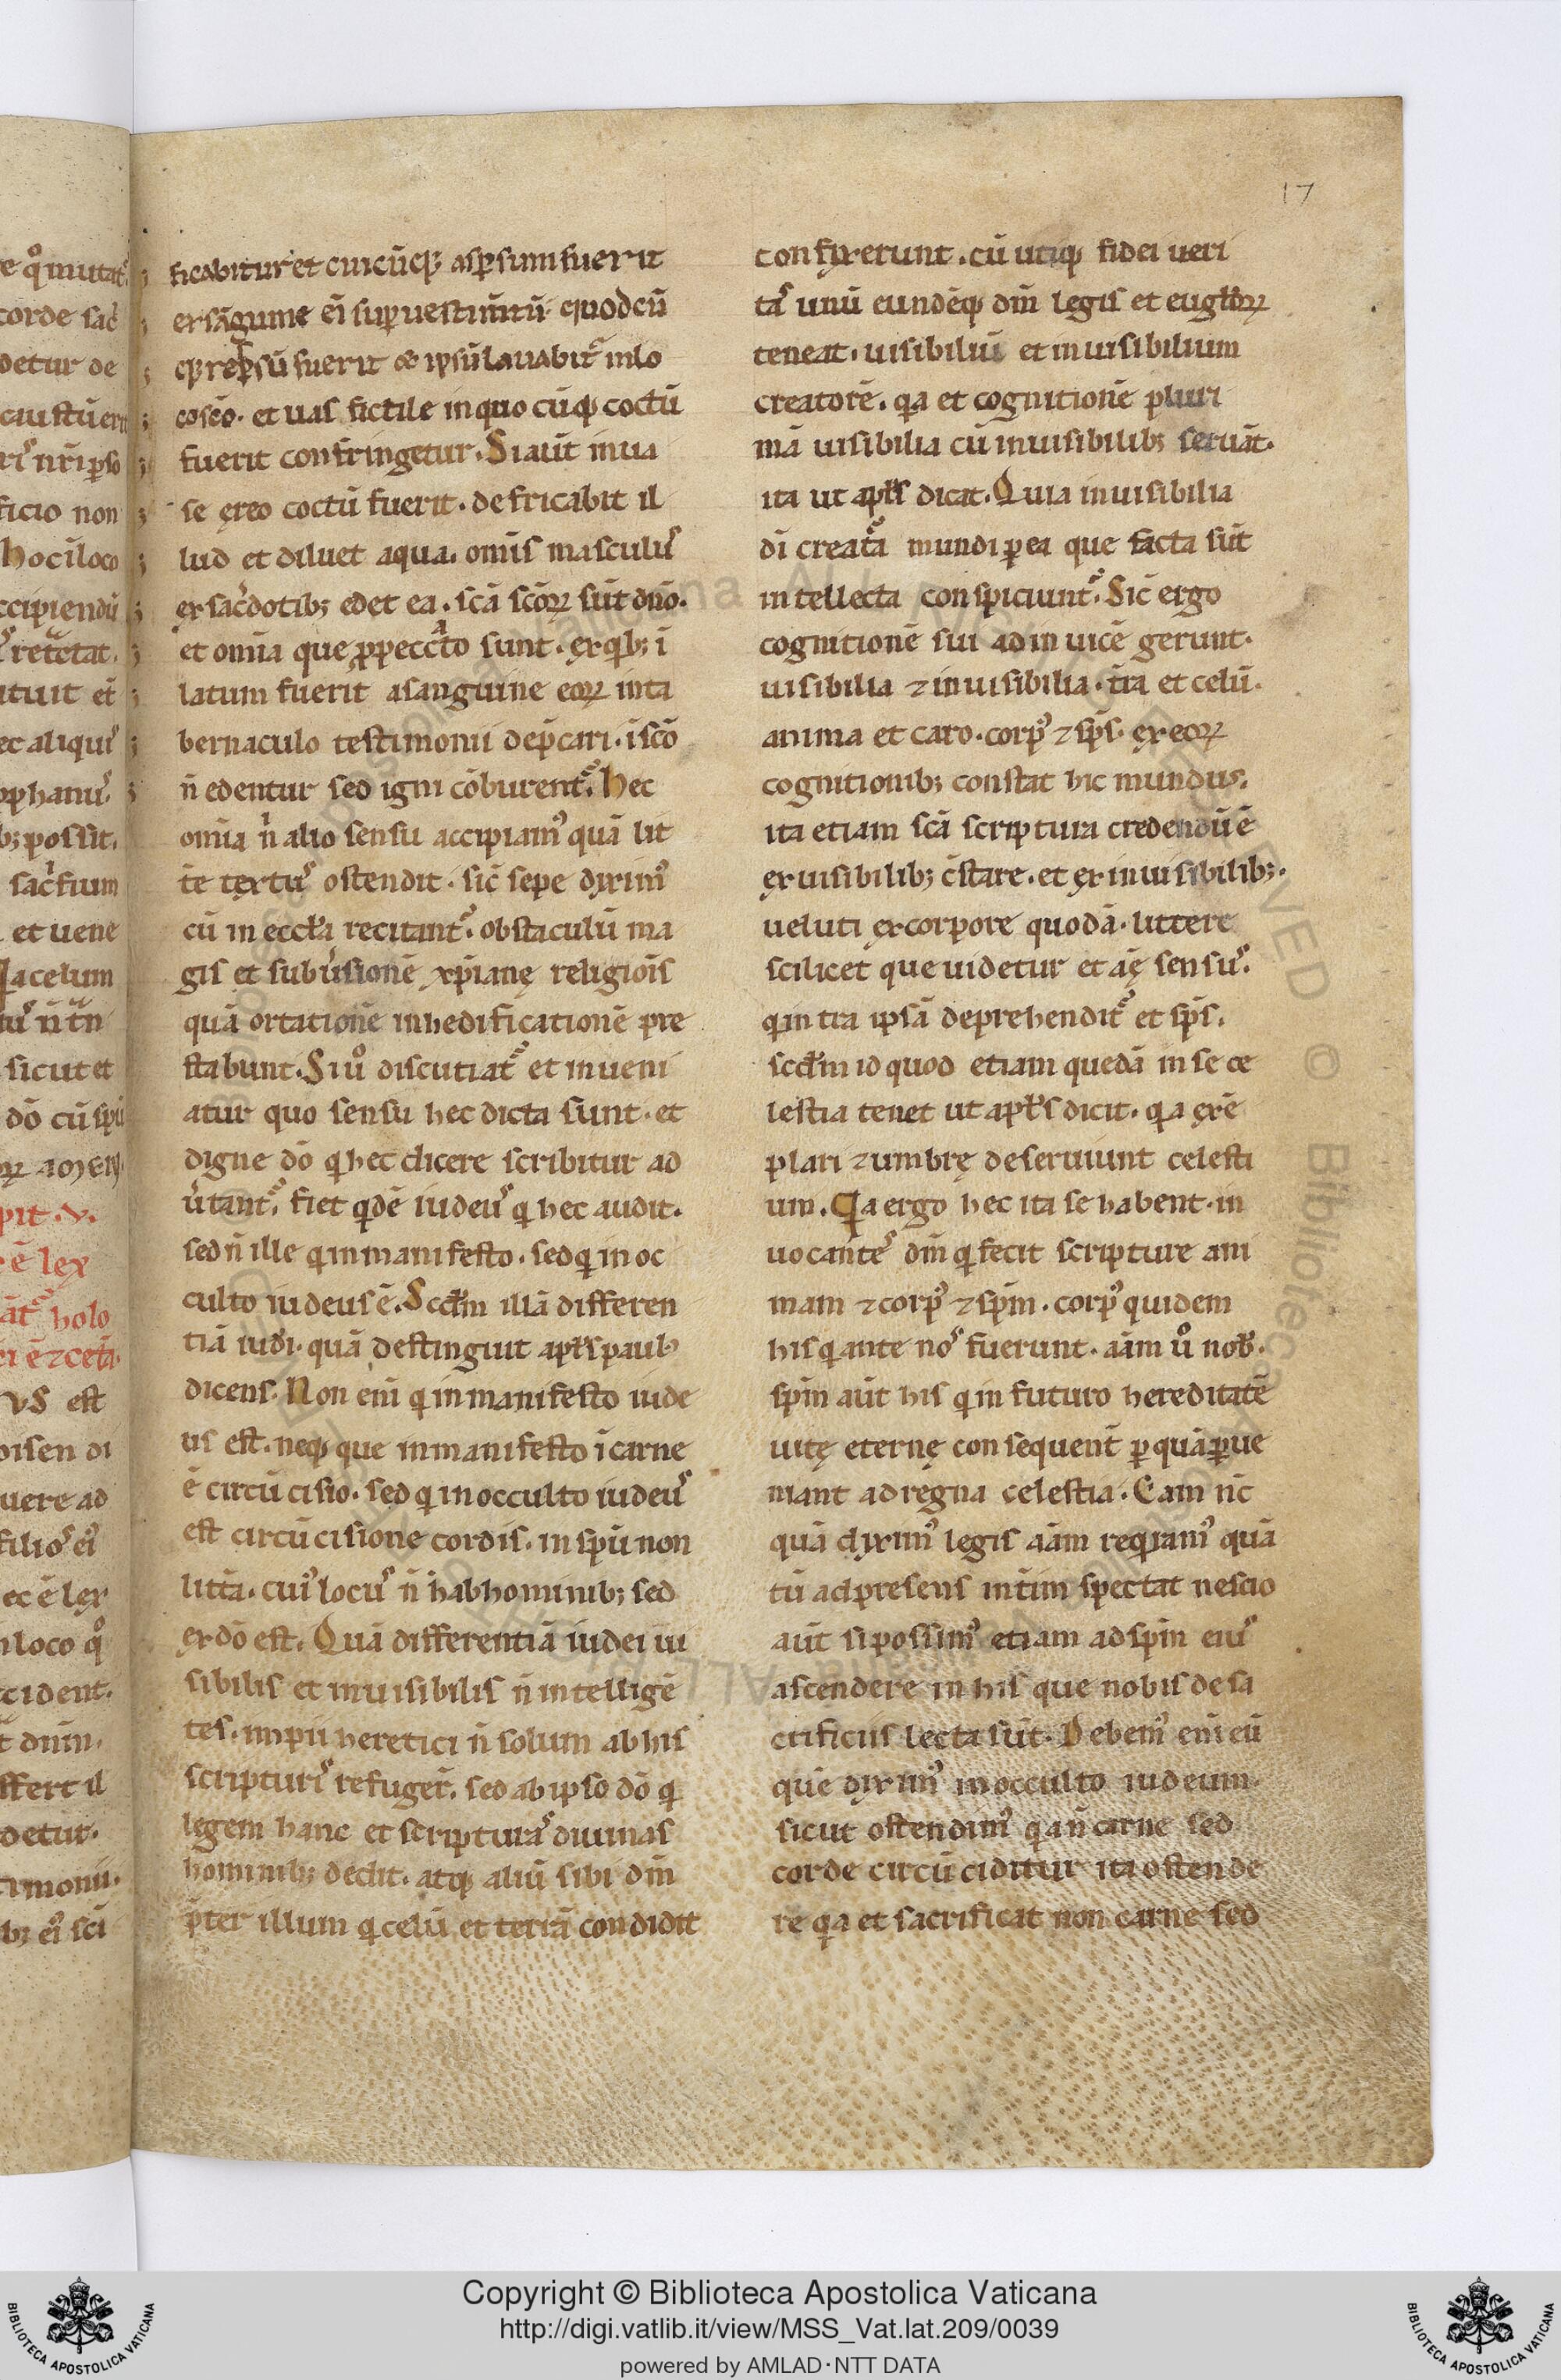 17
ficabitur et cuicūq; asꝑsum fuerit
ex sāguine ei suꝑ uestim̄tū· quodcū
qꝫ reꝑsū fuerit ex ipsū lauabit᷑ in lo
co sc̄o· et uas fictile in quo cūqꝫ coctū
fuerit confringetur. Si aut̄ in ua
se ęreo coctū fuerit· defricabit il
lud et diluet aqua. omīs masculus
ex sac̓dotibꝫ edet ea. sc̄a sc̄oꝝ sūt dn̄o·
et om̄ia que ꝓ peccato sunt· ex qibꝫ ī
latum fuerit a sanguine eoꝝ in ta
bernaculo testimonii dep̄cari· ī sc̄o
n̄ edentur sed igni cōburent᷑. Hec
om̄ia n̓ alio sensu accipiamꝰ quā lit
t̄e textus ostendit· sic̄ sepe diximꝰ
cū in eccl̄a recitant᷑· obstaculū ma
gis et subu̓sionē xp̄ianę religiōis
quā ortationē inhedificationē pre
stabunt. Si uͦ discutiat᷑ et inueni
atur quo sensu hec dicta sunt· et
digne dō q̄ hec dicere scribitur ad
u̓tant᷑, fiet qͥdē iudeus qͥ hec audit.
sed n̄ ille qͥ in manifesto· sed qͥ in oc
culto iudeus ē. Scd̄m illā differen
tiā iudi· quā destinguit apl̄s paulꝰ
dicens. Non enī qͥ in manifesto iude
us est. neqꝫ que in manifesto ī carne
ē circūcisio· sed qͥ in occulto iudeus
est circūcisione cordis. in sp̄u non
litt̄a· cuiꝰ locus n̄ hab hominibꝫ sed
ex dō est. Quā differentiā iudei ui
sibilis et inuisibilis n̄ intelligē
tes. impii heretici n̄ solum ab his
scripturis refuger̄. sed ab ipso dō qͥ
legem hanc et scripturas diuinas
hominibꝫ dedit. atqꝫ aliū sibi dm̄
p̄ter illum qͥ celū et terrā condidit
confixerunt. cū utiqꝫ fidei ueri
tas unū eundēqꝫ dm̄ legis et eugl̄ioꝝ
teneat. uisibiliū et inuisibilium
creatorē. qͥa et cognitionē pluri
mā uisibilia cū inuisibilibꝫ seruāt.
ita ut apl̄s dicat. Quia inuisibilia
dī creat᷑a mundi ꝑ ea que facta sūt
intellecta conspiciunt᷑. Sic̄ ergo
cognitionē sui ad inuicē gerunt.
uisibilia ⁊ inuisibilia· t̄ra et celū·
anima et caro· corpꝰ ⁊ sp̄s· ex eoꝝ
cognitionibꝫ constat hic mundus.
ita etiam sc̄a scriptura credendū ē
ex uisibilibꝫ c̄stare. et ex inuisibilibꝫ·
ueluti ex corpore quodā· littere
scilicet que uidetur et aīę sensus.
qͥ intra ipsā deprehendit᷑ et sp̄s.
scd̄m id quod etiam quedā in se ce
lestia tenet ut apl̄s dicit. qͥa exē
plari ⁊ umbrę deseruiunt celesti
um. Qͥa ergo hec ita se habent· in
uocantes dm̄ qͥ fecit scripture ani
mam ⁊ corpꝰ ⁊ sp̄m· corpꝰ quidem
his qͥ ante nos fuerunt· aīam uͦ nob̄·
sp̄m aūt his qͥ in futuro hereditatē
uitę eternę consequent̄ ꝑ quā ꝑue
niant ad regna celestia. Eam nc̄
quā diximꝰ legis aīam reqͥramꝰ quā
tū ad presens int̄im spectat nescio
aūt si possimꝰ etiam ad sp̄m eius
ascendere in his que nobis de sa
crificiis lecta sūt· Debemꝰ enī eū
quē diximꝰ in occulto iudeum·
sicut ostendimꝰ qͥa n̄ carne sed
corde circūciditur ita ostende
re qͥa et sacrificat non carne sed
Copyright © Biblioteca Apostolica Vaticana
http://digi.vatlib.it/view/MSS_Vat.lat.209/0039
powered by AMLAD·NTT DATA
BIBLIOTECA APOSTOLICA VATICANA
BIBLIOTECA APOSTOLICA VATICANA